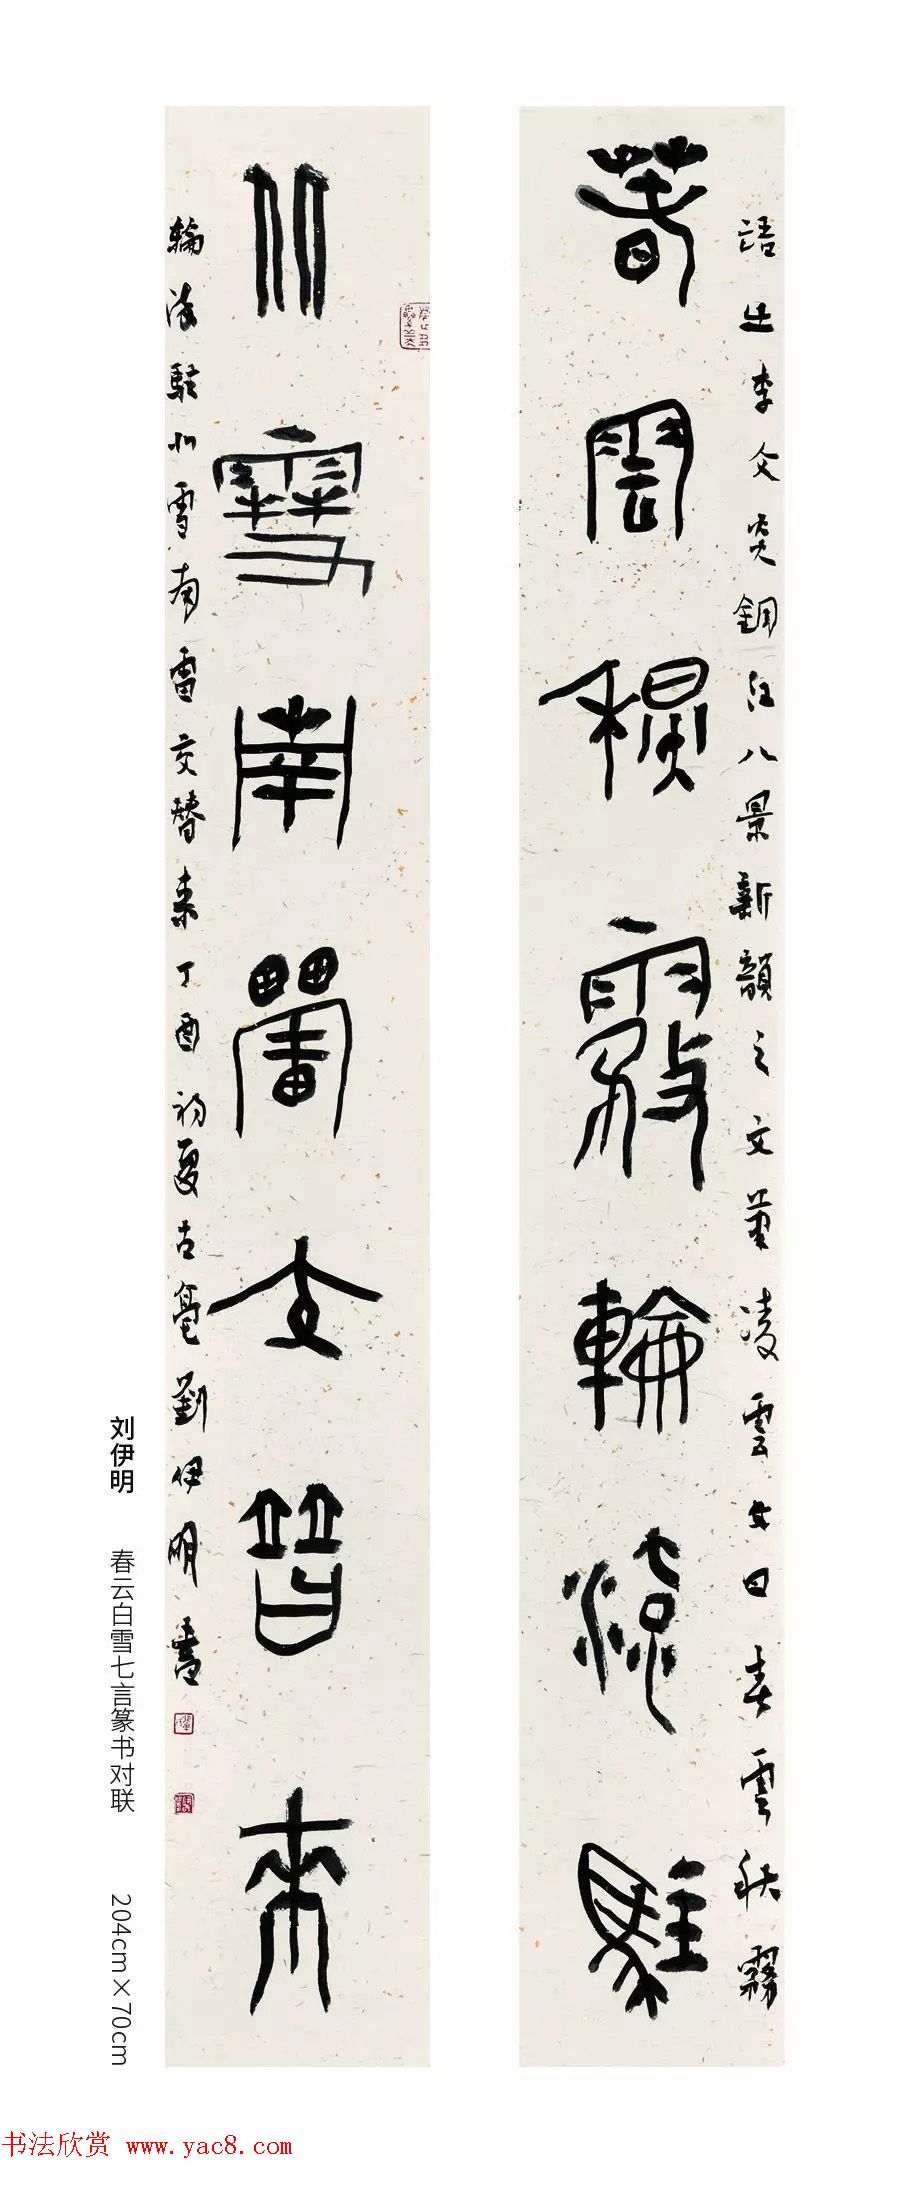 春雲秋霧輪流駐
北雪南雷交替來
語出李文奕銅江八景新韻之文筆凌雲文曰春雲秋霧
輪流駐北雪南雷交替來丁酉初夏古亳劉伊明書
刘伊明 春云白雪七言篆书对联 204cm×70cm
书法欣赏 www.yac8.com